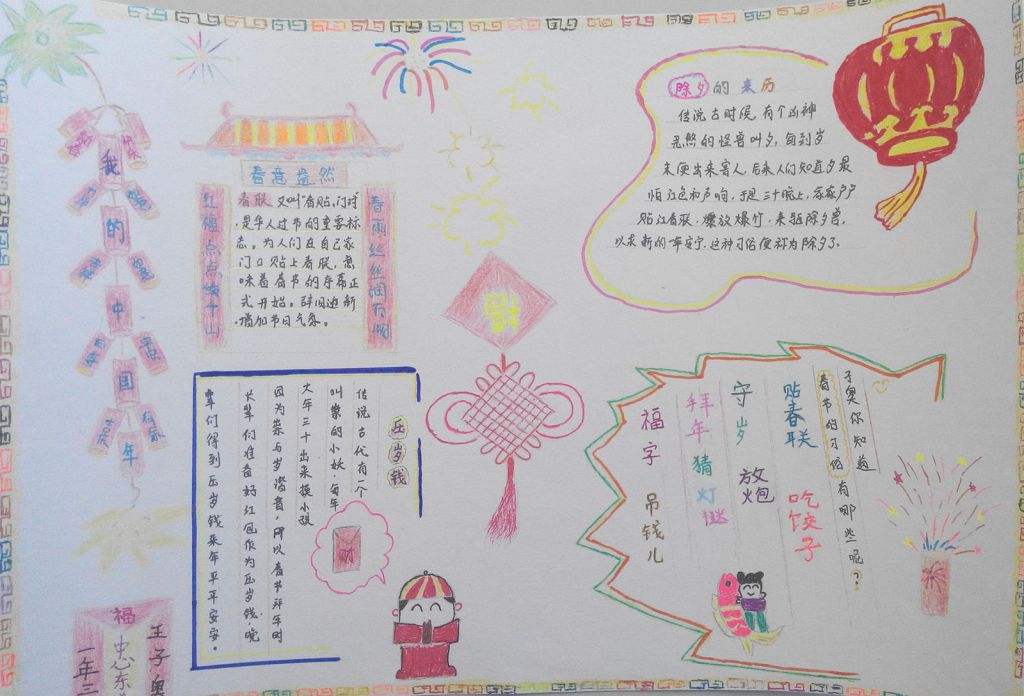 我的中国年
春意盎然
红福点点映千山
春雨丝丝润万物
春联又叫"春贴,门对"
是华人过节的重要标
志。为人们在自己家
门口贴上春联,意
味着春节的序幕正
式开始。辞旧迎新
增加节日气氛。
除夕的来历
传说古时侯,有个凶神
恶煞的怪兽叫夕,每到岁
末便出来害人,后来人们知道夕最
怕红色和声响,于是三十晚上,家家户户
贴红春联,爆放爆竹,来驱除夕兽,
以求新的一年安宁.这种习俗便称为除夕了.
福
压岁钱
传说古代有一个
叫祟的小妖,每年
大年三十出来摸小孩
因为祟与岁谐音,所以春节拜年时
长辈们准备好红包作为压岁钱,晚
辈们得到压岁钱来年平平安安。
子奥你知道
春节的习俗有哪些呢?
贴春联
吃饺子
守岁
放炮
拜年
猜灯谜
福字
吊钱儿
福
王子奥
忠心东
一年三